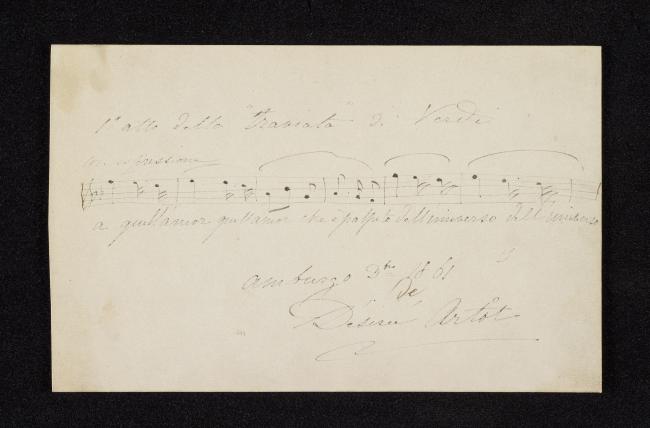 1º atto della "Traviata" di Verdi
con espressione
a quell'amor quell'amor che è palpito dell'universo dell'universo
Amburgo 1861
De
Désirée Artôt